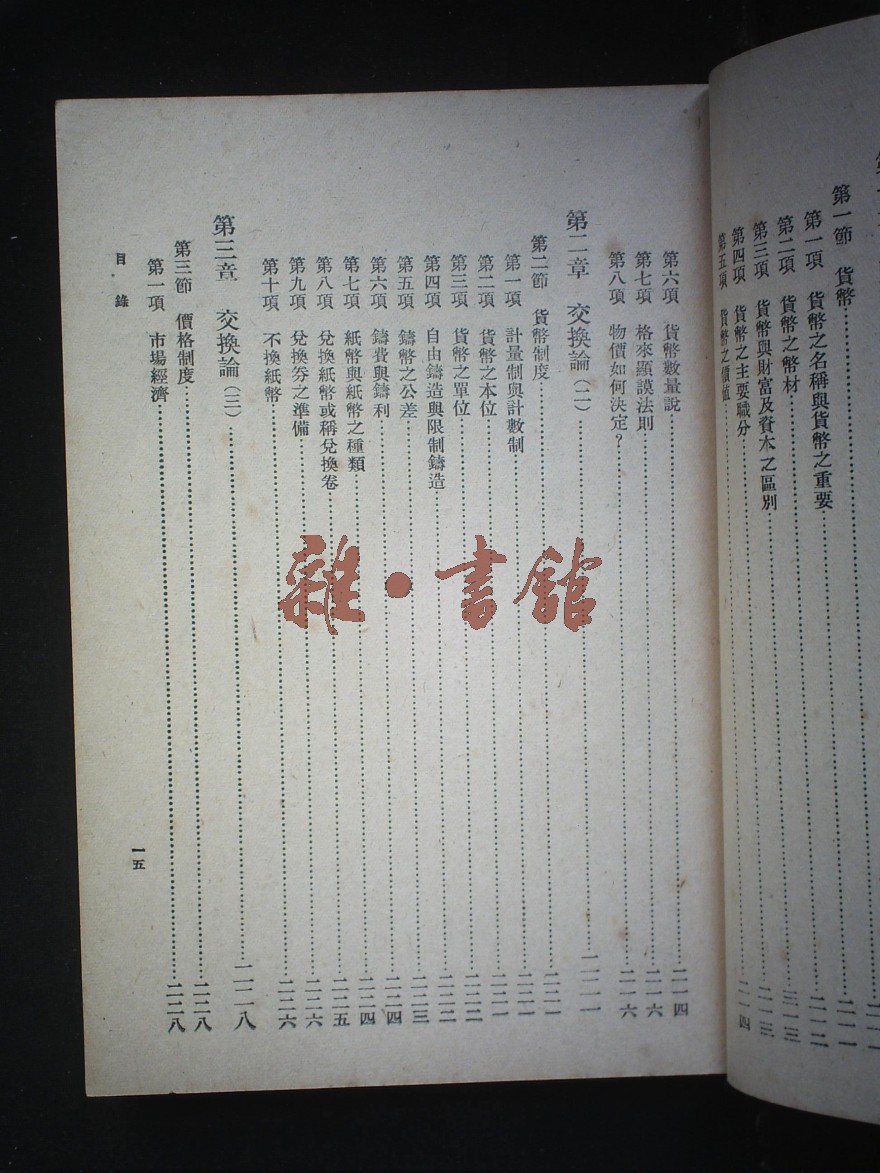 第一節 貨幣……二一一
第一項 貨幣之名稱與貨幣之重要……二一二
第二項 貨幣之幣材……二一三
第三項 貨幣與財富及資本之區別……二一三
第四項 貨幣之主要職分……二一四
第五項 貨幣之價值……
第六項 貨幣數量說……二一四
第七項 格來顯謨法則……二一六
第八項 物價如何決定？……二一六
第二章 交換論（二）……二二一
第二節 貨幣制度……二二一
第一項 計量制與計數制……二二一
第二項 貨幣之本位……二二一
第三項 貨幣之單位……二二二
第四項 自由鑄造與限制鑄造……二二二
第五項 鑄幣之公差……二二三
第六項 鑄費與鑄利……二二四
第七項 紙幣與紙幣之種類……二二四
第八項 兌換紙幣或稱兌換卷……二二五
第九項 兌換券之準備……二二六
第十項 不換紙幣……二二六
第三章 交換論（三）……二二八
第三節 價格制度……二二八
第一項 市場經濟……二二八
目錄
一五
雜·書館